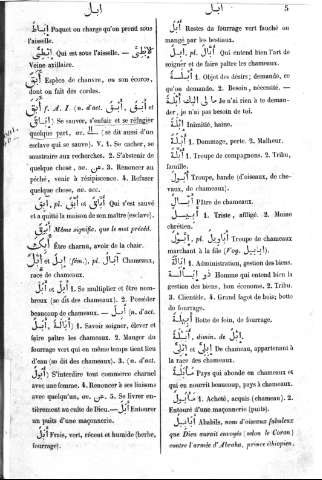 ابل
ابل
5
إِبَاطٌ Paquet ou charge qu'on prend sous
l'aisselle.
إِبْطِىٌّ Qui est sous l'aisselle. —
Veine axillaire.
أَبَقٌ Espèce de chanvre, ou son écorce,
dont on fait des cordes.
أَبَقَ f. A. I (n. d'act. أَبْقٌ, أَبَقٌ et
إِبَاقٌ) Se sauver, s'enfuir et se réfugier
quelque part, ac. (se dit aussi d'un
esclave qui se sauve). V. 1. Se cacher, se
soustraire aux recherches. 2. S'abstenir de
quelque chose, ac. 3. Renoncer au
péché, venir à résipiscence. 4. Refuser
quelque chose, ac. acc.
آبِقٌ, pl. أُبَّقٌ et أُبَّاقٌ Qui s'est sauvé
et a quitté la maison de son maître (esclave).
أَبُوقٌ Même signific. que le mot précéd.
أَبِكَ Être charnu, avoir de la chair.
إِبِلٌ et إِبْلٌ (fém.), pl. آبَالٌ Chameaux,
race de chameaux.
أَبَلَ et أَبِلَ 1. Se multiplier et être nom-
breux (se dit des chameaux). 2. Posséder
beaucoup de chameaux. — أَبِلَ (n. d'act.
أَبَالَةٌ, أَبَلٌ) 1. Savoir soigner, élever et
faire paître les chameaux. 2. Manger du
fourrage vert qui en même temps tient lieu
d'eau (se dit des chameaux). 3. (n. d'act.
أُبُولٌ) S'interdire tout commerce charnel
avec une femme. 4. Renoncer à ses liaisons
avec quelqu'un, ac. عن. 5. Se livrer en-
tièrement au culte de Dieu. — أَبَلَ Entourer
un puits d'une maçonnerie.
أُبُلٌ Frais, vert, récent et humide (herbe,
fourrage).
أُبْلٌ Restes du fourrage vert fauché ou
mangé par les bestiaux.
آبِلٌ, pl. أُبَّالٌ Qui entend bien l'art de
soigner et de faire paître les chameaux.
أَبْلَةٌ 1. Objet du désir; demande, ce
qu'on demande. 2. Besoin, nécessité. —
ما لى اليك أبلة Je n'ai rien à te deman-
der, je n'ai pas besoin de toi.
أَبِلَةٌ Inimitié, haine.
أُبْلَةٌ 1. Dommage, perte. 2. Malheur.
أُبُلَّةٌ 1. Troupe de compagnons. 2. Tribu,
famille.
إِبَّوْلٌ Troupe, bande (d'oiseaux, de che-
vaux, de chameaux).
أَبَّالٌ Pâtre de chameaux.
أَبِيلٌ 1. Triste, affligé. 2. Moine
chrétien.
إِبَّوْلٌ, pl. أَبَابِيلُ Troupe de chameaux
marchant à la file (Voy. أبابيل).
إِبَالَةٌ 1. Administration, gestion des biens.
ذو إبالة Homme qui entend bien la
gestion des biens, bon économe. 2. Tribu.
3. Clientèle. 4. Grand fagot de bois; botte
de fourrage.
أَبِيلَةٌ Botte de foin, de fourrage.
أُبَيْلَةٌ, dimin. de إِبِلٌ.
إِبِلِىٌّ et إِبَلِىٌّ De chameau, appartenant à
la race des chameaux.
مَأْبَلَةٌ Pays qui abonde en chameaux et
qui en nourrit beaucoup, pays à chameaux.
مَأْبُولٌ 1. Acheté, acquis (chameau). 2.
Entouré d'une maçonnerie (puits).
أَبَابِيلُ Ababils, nom d'oiseaux fabuleux
que Dieu aurait envoyés (selon le Coran)
contre l'armée d'Abraha, prince éthiopien.